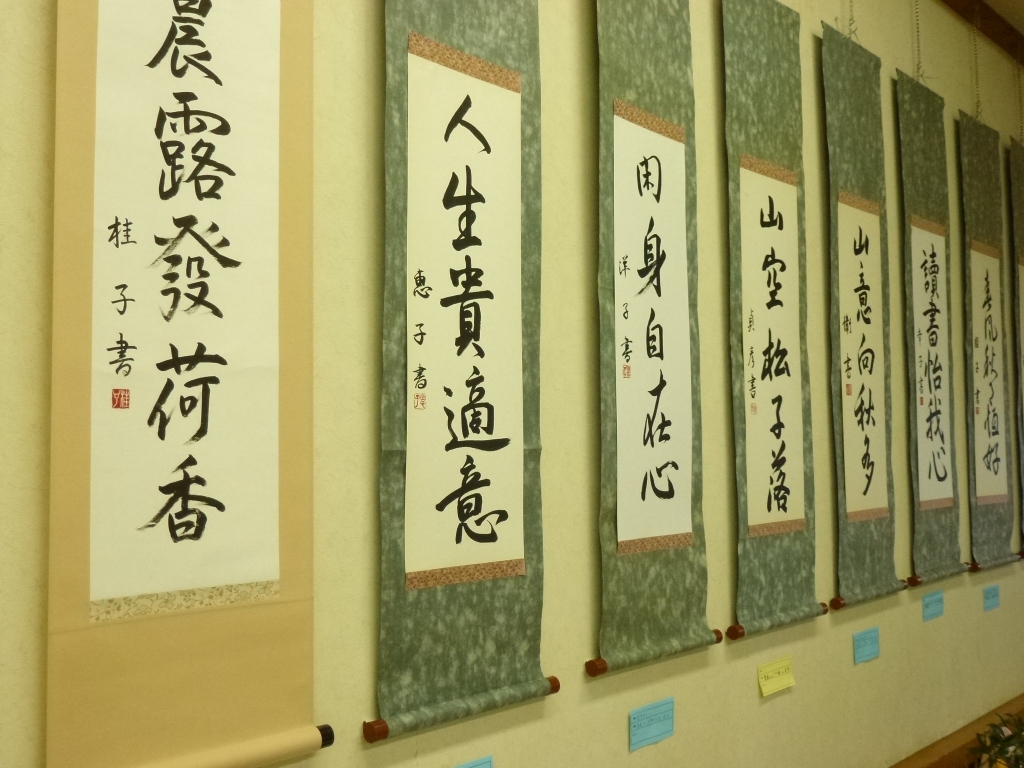 晨露發荷香
桂子書
人生貴適意
惠子書
閑身自在心
洋子書
山空松子落
貞彦書
山意向秋多
樹書
讀書怡我心
幸子書
春風秋月恒好